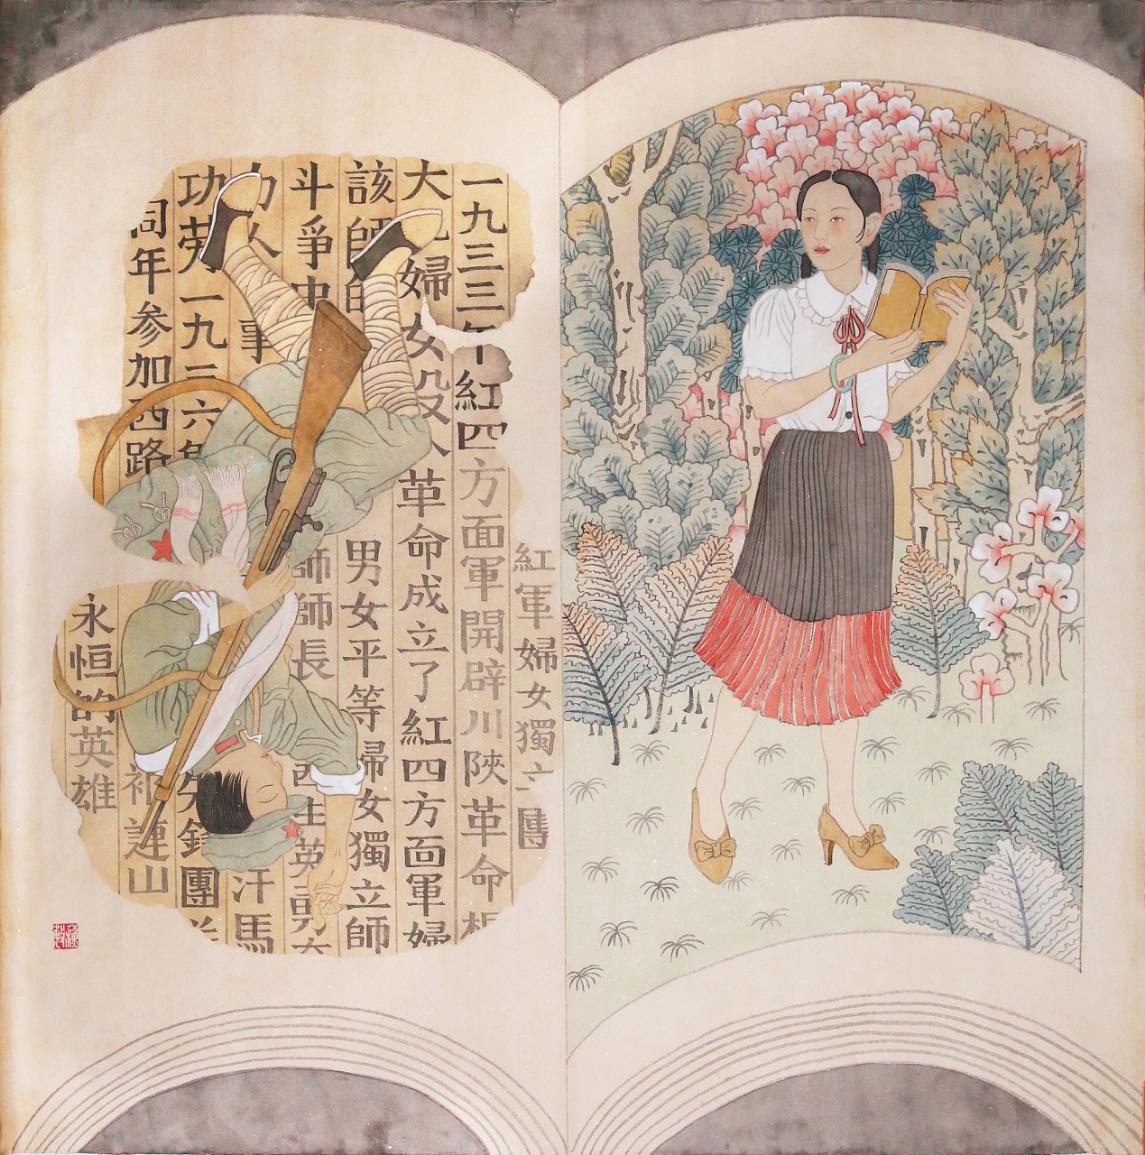 紅軍婦女獨立團
一九三三年紅四方面軍開辟川陝革命根
大 婦女投入革命成立了紅四方面軍婦
該師的 男女平等婦女獨立師
斗爭中 師師長 英勇
人事 汗馬
功勞一九三六年 先鋒團
同年参加西路 祁連山
永恒的英雄